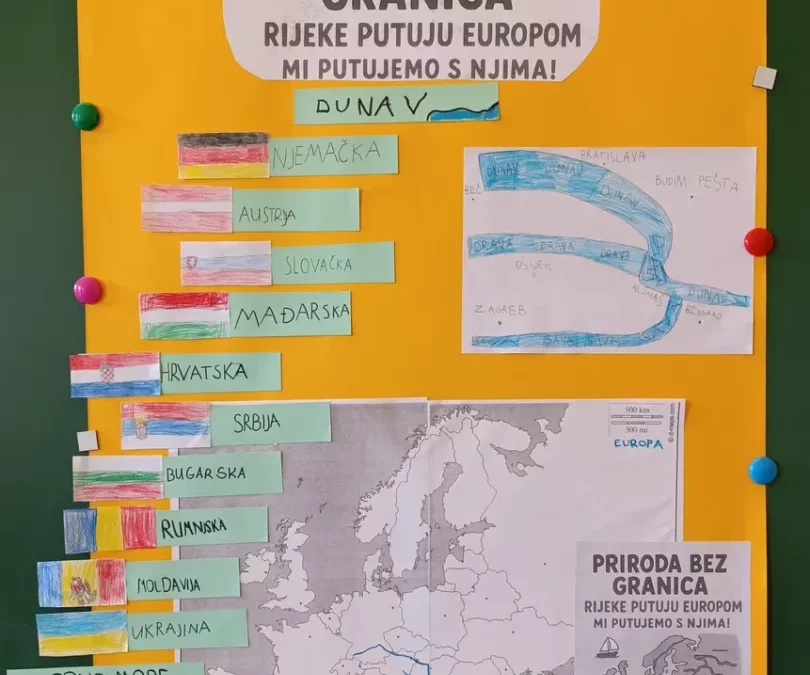 GRANICA
RIJEKE PUTUJU EUROPOM
MI PUTUJEMO S NJIMA!
DUNAV
NJEMAČKA
AUSTRIJA
SLOVAČKA
MAĐARSKA
HRVATSKA
SRBIJA
BUGARSKA
RUMNJSKA
MOLDAVIJA
UKRAJINA
BRATISLAVA
BEČ
DUNAV DUNAV DUNAV
BUDIM PEŠTA
DRAVA DRAVA DRAVA
OSIJEK
ALJMAŠ
DUNAV
ZAGREB
BEOGRAD
SAVA SAVA SAVA
500 km
300 mi
© d-maps.com
EUROPA
PRIRODA BEZ
GRANICA
RIJEKE PUTUJU EUROPOM
MI PUTUJEMO S NJIMA!